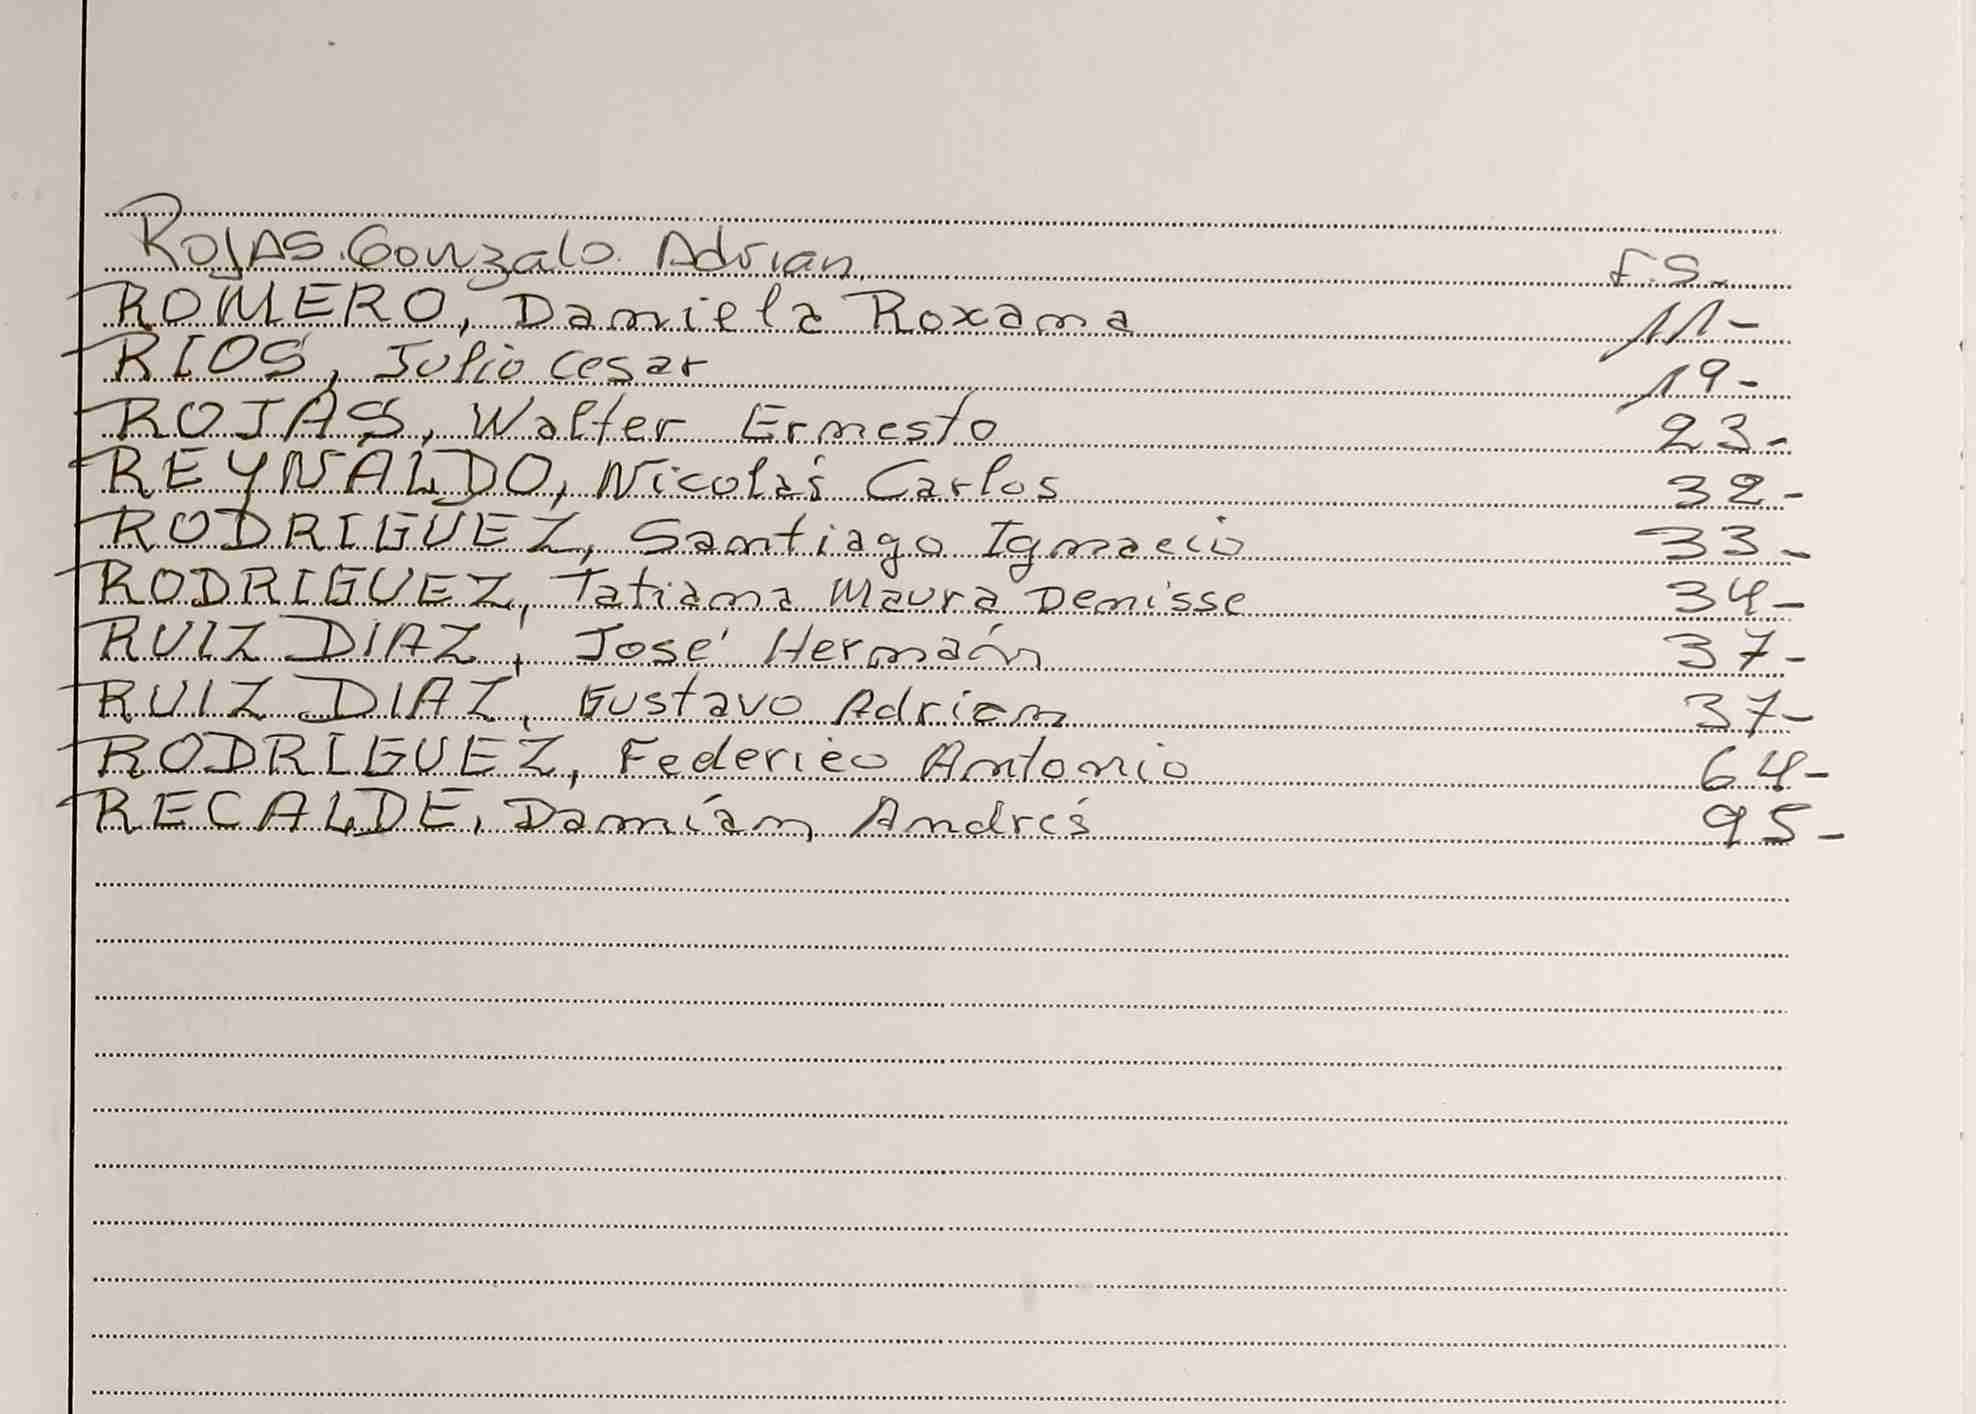 Rojas Gonzalo Adrian F.S.-
ROMERO, Daniela Roxana 11-
RIOS, Julio Cesar 19-
ROJAS, Walter Ernesto 23-
REYNALDO, Nicolás Carlos 32-
RODRIGUEZ, Santiago Ignacio 33-
RODRIGUEZ, Tatiana Maura Denisse 34-
RUIZ DIAZ, José Hernán 37-
RUIZ DIAZ, Gustavo Adrian 37-
RODRIGUEZ, Federico Antonio 64-
RECALDE, Damián Andrés 95-